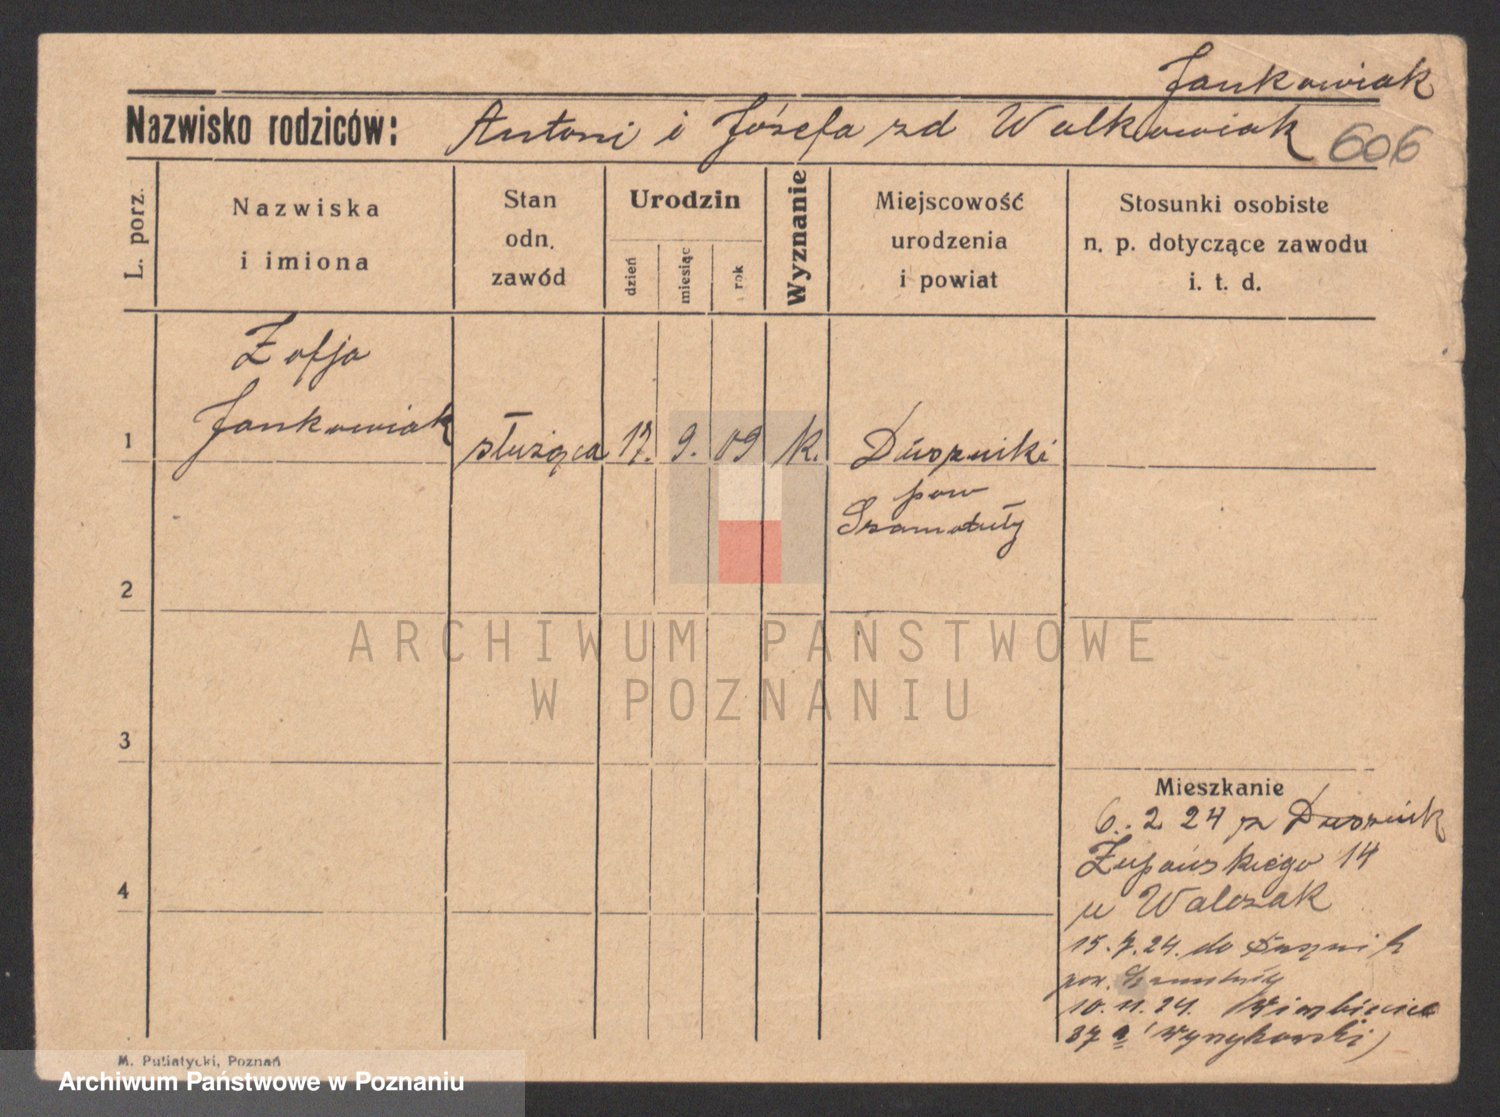 Jankowiak
Nazwisko rodziców: Antoni i Józefa zd Walkowiak 606
L. porz.
Nazwiska
i imiona
Stan
odn.
zawód
Urodzin
dzień
miesiąc
rok
Wyznanie
Miejscowość
urodzenia
i powiat
Stosunki osobiste
n. p. dotyczące zawodu
i. t. d.
Zofja
1 Jankowiak służąca 17. 9. 09 k. Duszniki
pow
Szamotuły
2
ARCHIWUM PAŃSTWOWE
W POZNANIU
3
Mieszkanie
6. 2 24 z Dusznik
Żupańskiego 14
4
u Walczak
15. 7. 24. do Dusznik
pow. Szamotuły
10. 11. 24. Wierzbięcice
37
M. Putiatycki, Poznań
Archiwum Państwowe w Poznaniu